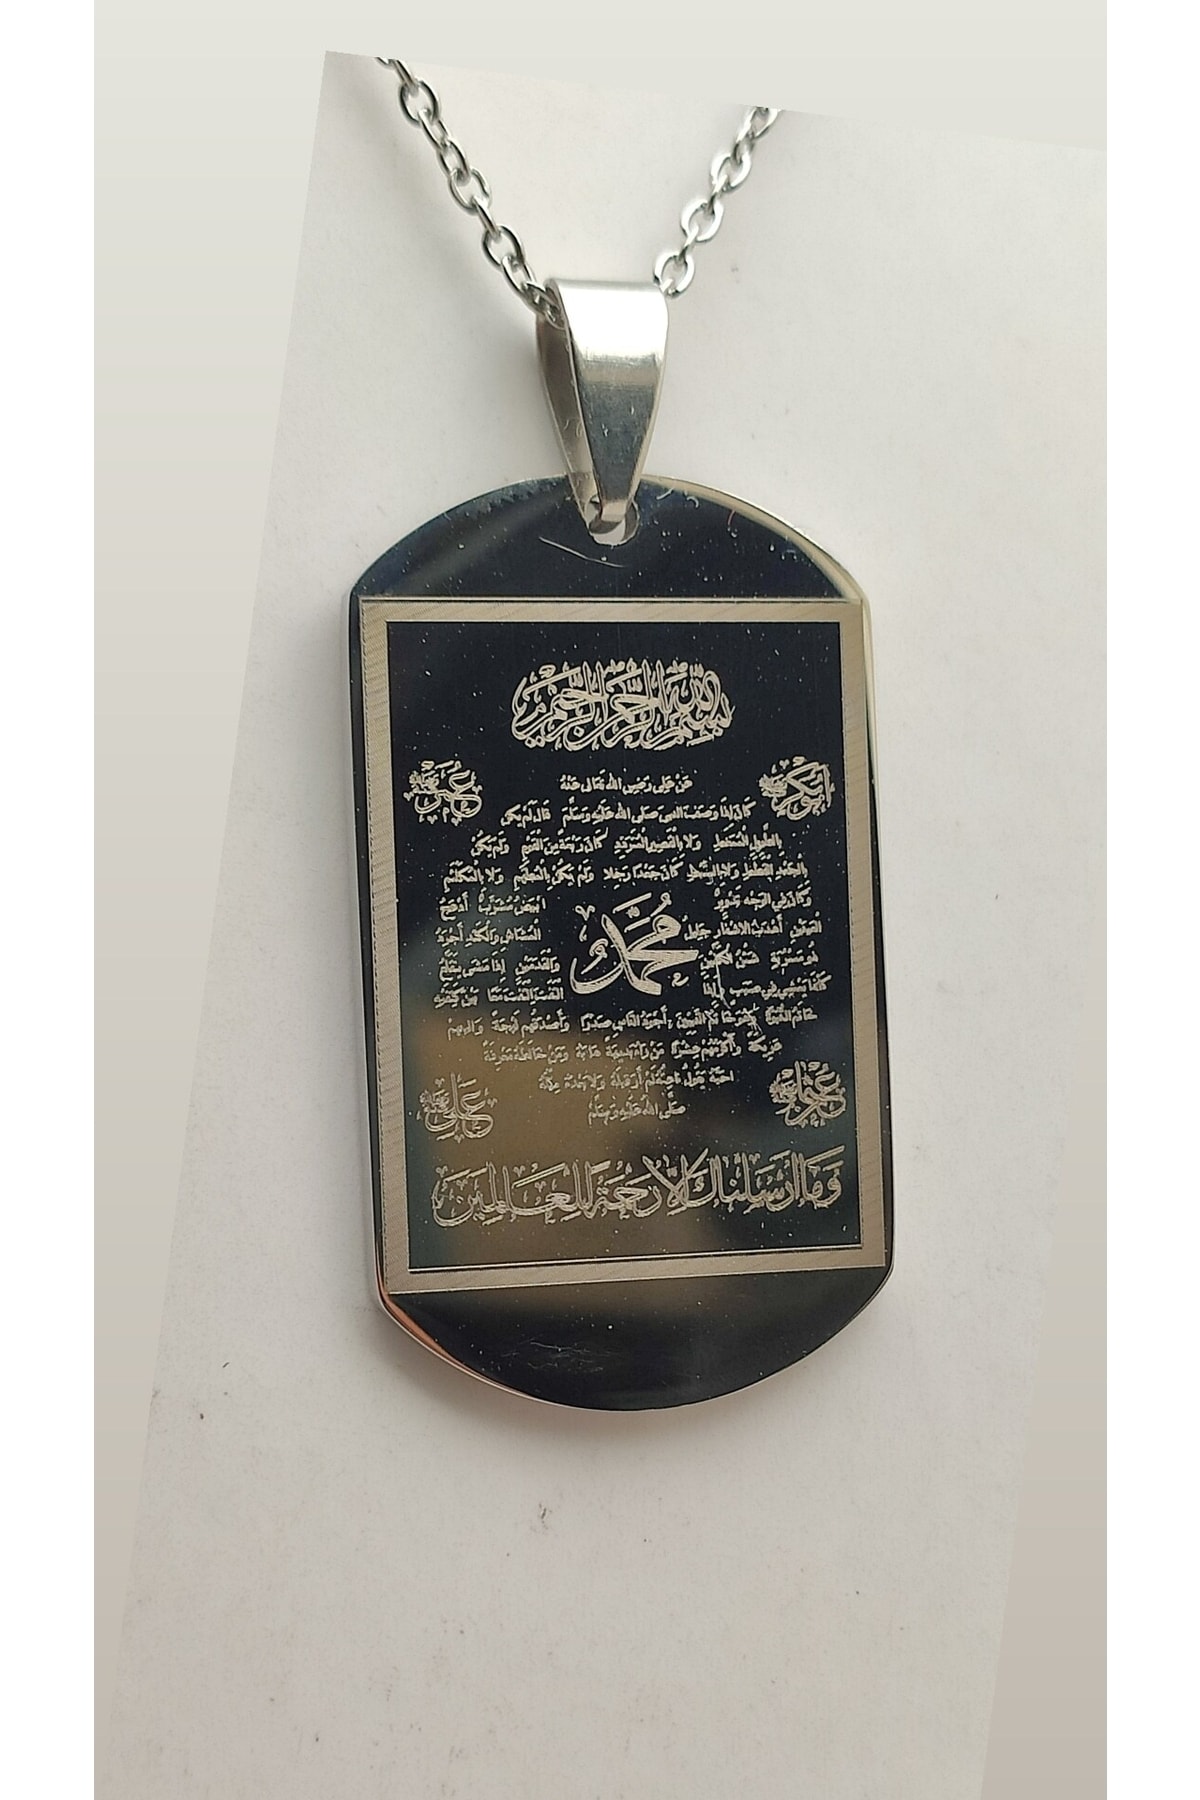 بسم الله الرحمن الرحيم
ابوبكر
عمر
عن على رضى الله تعالى عنه
كان اذا وصف النبى صلى الله عليه وسلم قال لم يكن
بالطويل الممغط ولا بالقصير المتردد كان ربعة من القوم ولم يكن
بالجعد القطط ولا بالسبط كان جعدا رجلا ولم يكن بالمطهم ولا بالمكلثم
وكان فى الوجه تدوير ابيض مشرب أدعج
العينين أهدب الاشفار جليل المشاش والكتد أجرد
محمد
ذو مسربة شثن الكفين والقدمين إذا مشى يتقلع
كانما يمشى فى صبب وإذا التفت التفت معا بين كتفيه
خاتم النبوة وهو خاتم النبيين أجود الناس صدرا وأصدقهم لهجة والينهم
عريكة وأكرمهم عشرة من رآه بديهة هابه ومن خالطه معرفة
احبه يقول ناعته لم أر قبله ولا بعده مثله
صلى الله عليه وسلم
عثمان
على
وما ارسلناك الا رحمة للعالمين